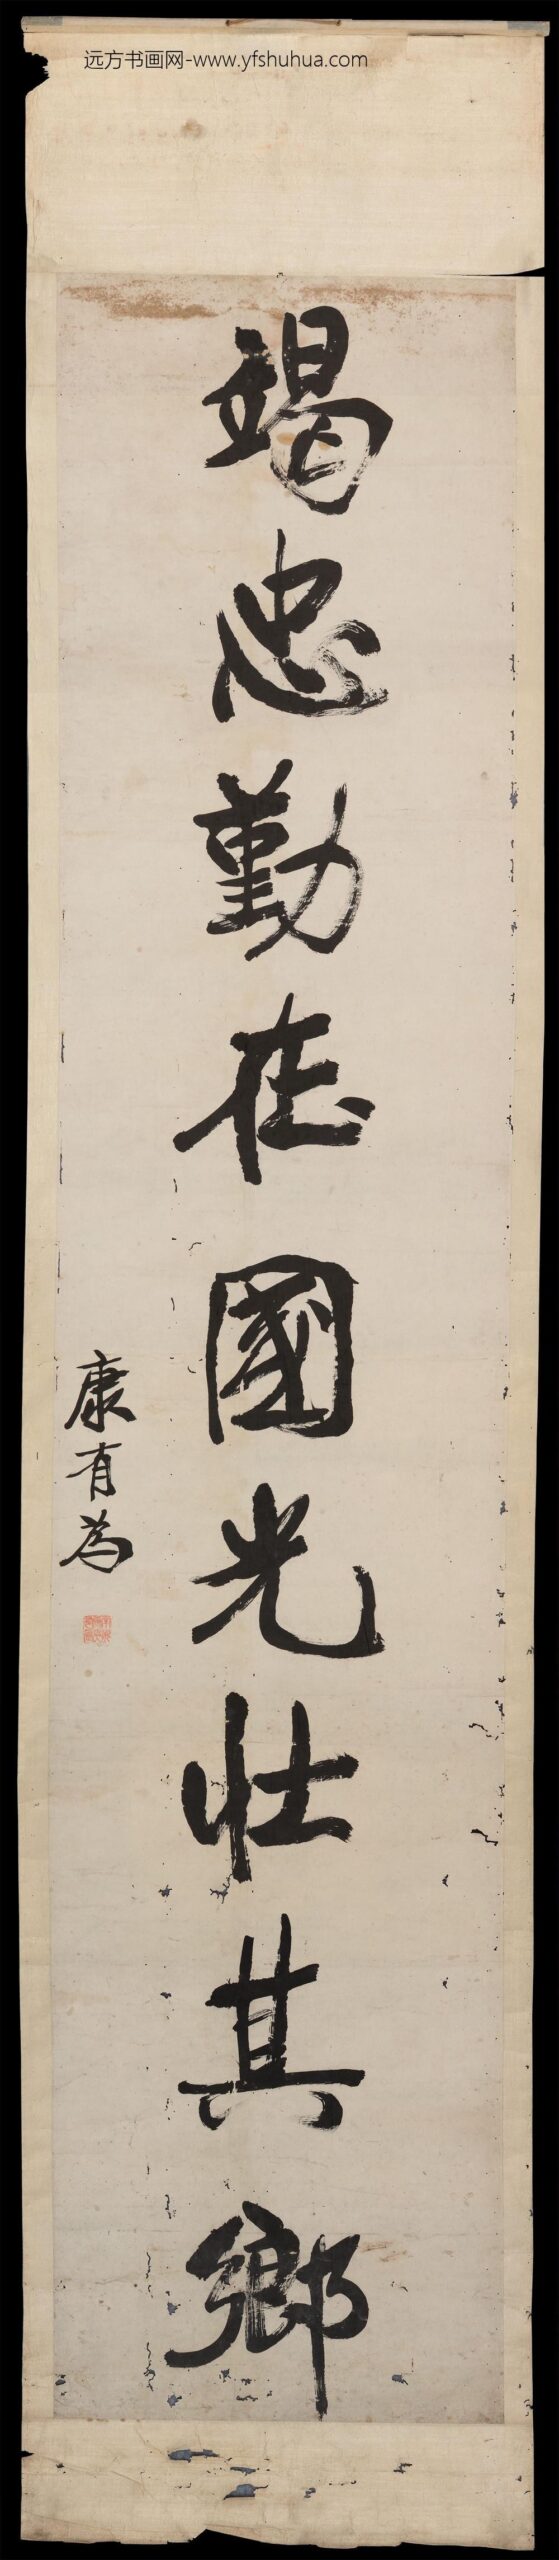 远方书画网-www.yfshuhua.com
竭忠勤在國光壯其鄉
康有為